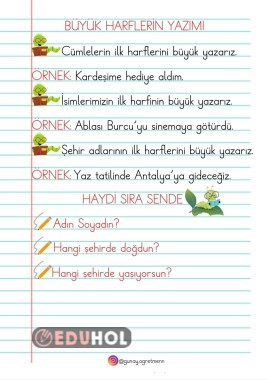 BÜYÜK HARFLERİN YAZIMI
Cümlelerin ilk harflerini büyük yazarız.
ÖRNEK: Kardeşime hediye aldım.
İsimlerimizin ilk harfinin büyük yazarız.
ÖRNEK: Ablası Burcu'yu sinemaya götürdü.
Şehir adlarının ilk harflerini büyük yazarız.
ÖRNEK: Yaz tatilinde Antalya'ya gideceğiz.
HAYDİ SIRA SENDE
Adın Soyadın?
Hangi şehirde doğdun?
Hangi şehirde yaşıyorsun?
EDUHOL
@gunay.ogretmenn